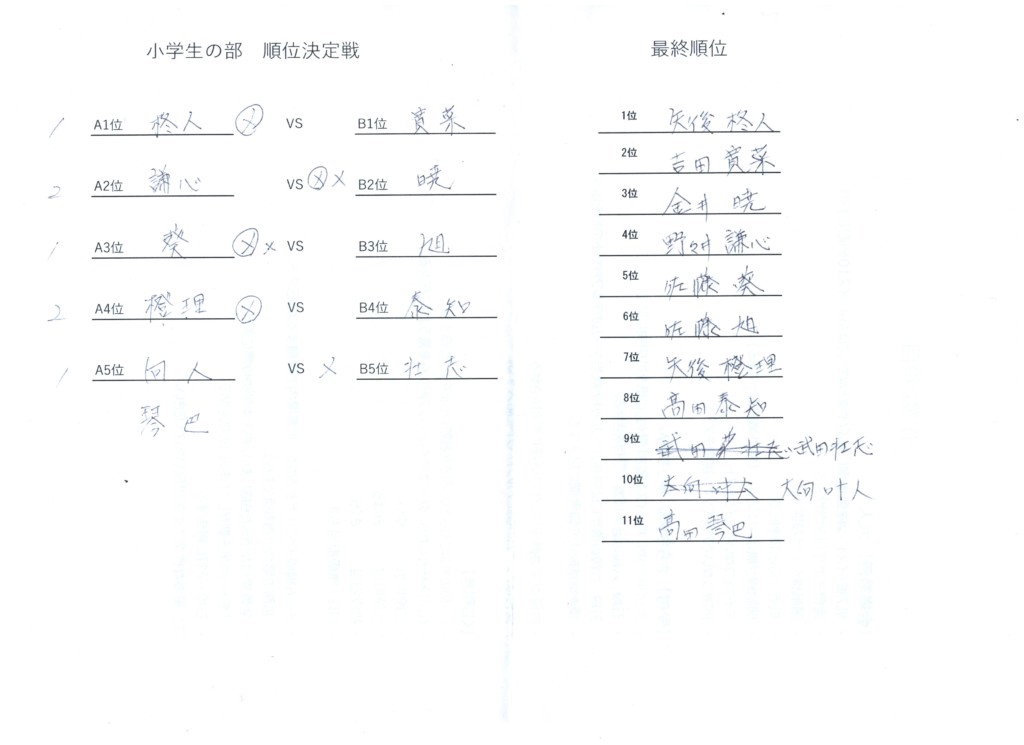 小学生の部 順位決定戦
1 A1位 柊人 ⓧ VS B1位 實菜
2 A2位 謙心 VS ⓧ x B2位 暁
1 A3位 葵 ⓧ x VS B3位 旭
2 A4位 橙理 ⓧ VS B4位 泰知
1 A5位 向人 VS x B5位 壮志
琴巴
最終順位
1位 矢後 柊人
2位 吉田 實菜
3位 金井 暁
4位 野々井 謙心
5位 佐藤 葵
6位 佐藤 旭
7位 矢後 橙理
8位 高田 泰知
9位 武田 壮志 武田壮志
10位 大向 叶人 大向 叶人
11位 高田 琴巴